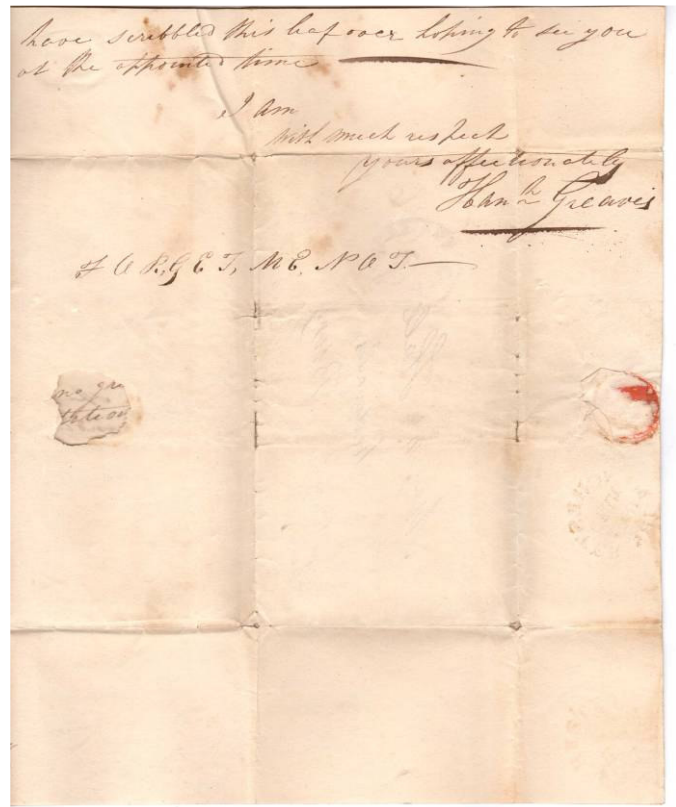 have scribbled this leaf over hoping to see you
at the appointed time
I am
with much respect
yours affectionately
Hanh Greaves
FORGET, ME, NOT.